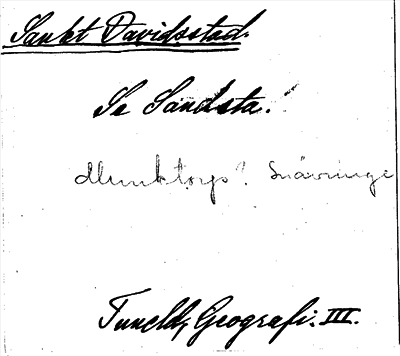 Sankt Davidsstad.
Se Sandsta!
Munktorps? Snävringe
Tuneld, Geografi. III.